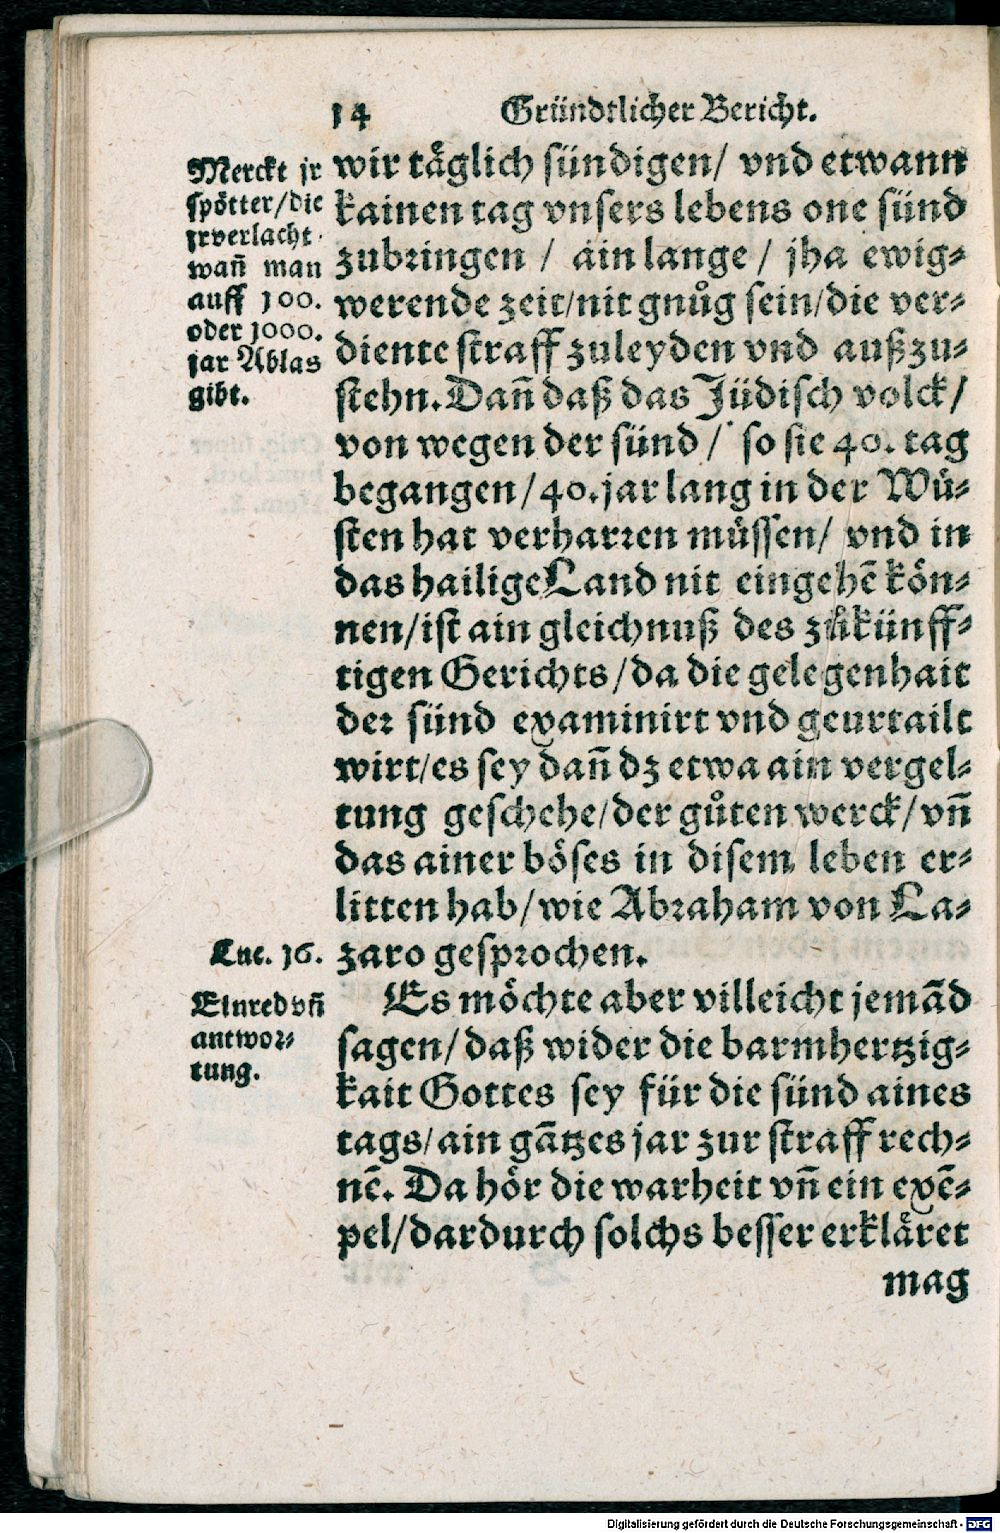 14 Gründtlicher Bericht.
Merckt jr
spötter/die
jrverlacht
wañ man
auff 100.
oder 1000.
jar Ablas
gibt.
wir täglich sündigen/ vnd etwann
kainen tag vnsers lebens one sünd
zubringen / ain lange / jha ewig⸗
werende zeit/nit gnůg sein/die ver⸗
diente straff zuleyden vnd außzu⸗
stehn. Dañ daß das Jüdisch volck/
von wegen der sünd / so sie 40. tag
begangen/40. jar lang in der Wü⸗
sten hat verharren müssen/ vnd in
das hailige Land nit eingehẽ kön⸗
nen/ist ain gleichnuß des zůkünff⸗
tigen Gerichts/da die gelegenhait
der sünd examinirt vnd geurtailt
wirt/es sey dañ dz etwa ain vergel⸗
tung geschehe/der gůten werck/vñ
das ainer böses in disem leben er⸗
litten hab/wie Abraham von La⸗
Luc. 16. zaro gesprochen.
Einred vñ
antwor⸗
tung.
Es möchte aber villeicht jemãd
sagen/daß wider die barmhertzig⸗
kait Gottes sey für die sünd aines
tags/ain gãtzes jar zur straff rech⸗
nẽ. Da hör die warheit vñ ein exẽ⸗
pel/dardurch solchs besser erkläret
mag
Digitalisierung gefördert durch die Deutsche Forschungsgemeinschaft - DFG